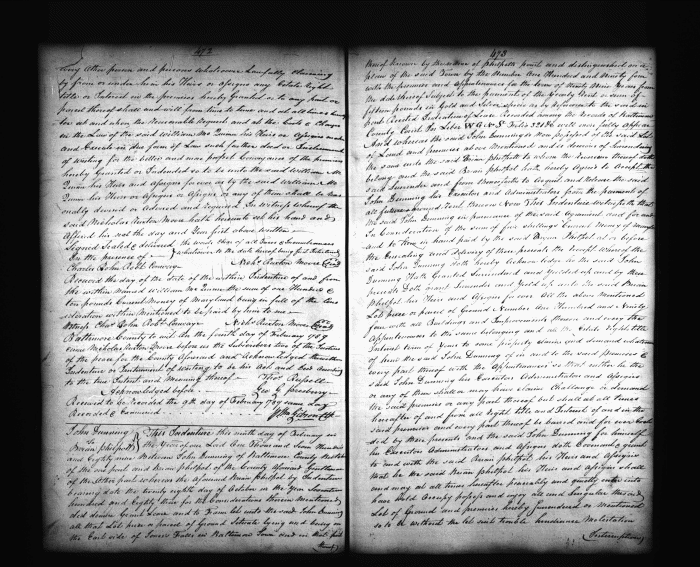 472
Every other person and persons whatsoever Lawfully claiming
by from or under him his Heirs or Assigns any Estate Right
title or Interest in the premises hereby Granted or to any part or
parcel thereof shall and will from time to time and at all times hereaf
ter at and upon the Reasonable Request and at the Cost & Charges
in the Law of the said William Mc his Heirs or Assigns make
and Execute in due form of Law such further deed or Instrument
of writing for the better and more perfect Conveyance of the premises
hereby Granted or Intended so to be unto the said William Mc
his Heirs and Assigns forever as by the said William Mc
his Heirs or Assigns or any of them shall be Reas
onably devised or Advised and required In Witness whereof the
said Nicholas Ruxton Moore hath hereunto set his hand and
Affixed his seal the day and Year first above written
Signed Sealed & delivered
In the presence of
Nichs Ruxton Moore
Received the day of the date of the within Indenture of and from
the within Named William Mc the sum of one Hundred &
ten pounds Current Money of Maryland being in full of the Con
sideration within Mentioned to be paid by him to me
Nichs Ruxton Moore
Baltimore County to wit On the fourth day of February 1789
came Nicholas Ruxton Moore before us the Subscribers two of the Justices
of the peace for the County aforesaid and Acknowledged the within
Indenture or Instrument of writing to be his Act and Deed according
to the true Intent and Meaning thereof
Acknowledged before
Received to be Recorded the 9th day of February 1789 same day
Recorded & Examined
John Dunning
to
Brian Philpot
This Indenture this ninth day of February in
the Year of our Lord One Thousand and Seven Hundred
and Eighty nine Between John Dunning of Baltimore County
of the one part and Brian Philpot of the County aforesaid Gentleman
of the other part whereas the aforesaid Brian Philpot by Indenture
bearing date the twenty eighth day of October in the Year Seventeen
hundred and Eighty for the Considerations therein Mentioned
did demise Grant Lease and to Farm let unto the said John Dunning
all that Lot piece or parcel of Ground Situate lying and being on
the East side of Jones's Falls in Baltimore Town and in that part
thereof
473
thereof Known by the Name of Philpots point and distinguished on a
plan of the said Town by the Number One Hundred and Ninety four
with the premises and Appurtenances for the term of Ninety Nine Years from
fifteen pounds in Gold and Silver
County Court In Liber W G No
And whereas the said John Dunning is Now possessed of the said Lot
of Land and Premises above Mentioned and is desirous of Surrendering
the same unto the said Brian Philpot to whom the Reversion thereof doth
belong and the said Brian Philpot hath hereby Agreed to Accept the
said Surrender and from henceforth to Acquit and Release the said
John Dunning his Executors and Administrators from the payment of
all future Annual Rent Now This Indenture witnesseth that
the said John Dunning in pursuance of the said Agreement and for and
In Consideration of the sum of five shillings Current Money of Maryland
to him in hand paid by the said Brian Philpot at or before
the Ensealing and delivery of these presents the Receipt whereof the
said John Dunning doth hereby Acknowledge he the said John
Dunning Hath Granted Surrendered and Yielded up and by these
presents Doth Grant Surrender and Yield up unto the said Brian
Philpot his Heirs and Assigns forever All the above Mentioned
Lot piece or parcel of Ground Number One Hundred and Ninety
four with all Buildings and Improvements thereon and every the
Appurtenances to the same belonging and all the Estate Right title
Interest term of Years to come property claim and demand whatsoever
of him the said John Dunning of in and to the said premises &
every part thereof with the Appurtenances so that neither he the
said John Dunning his Executors Administrators and Assigns
or any of them shall or may have claim Challenge or demand
the said premises or any part thereof but shall at all times
hereafter of and from all Right title and Interest of and in the
said premises and every part thereof be barred and for ever Exclu
ded by these presents and the said John Dunning for himself
his Executors Administrators and Assigns doth Covenant & grant
to and with the said Brian Philpot his Heirs and Assigns
that he the said Brian Philpot his Heirs and Assigns shall
and may at all times hereafter peaceably and quietly enter into
have hold Occupy possess and enjoy all and Singular the said
Lot of Ground and premises hereby Surrendered or Mentioned
so to be without the let suit trouble hinderance Molestation
Interruption